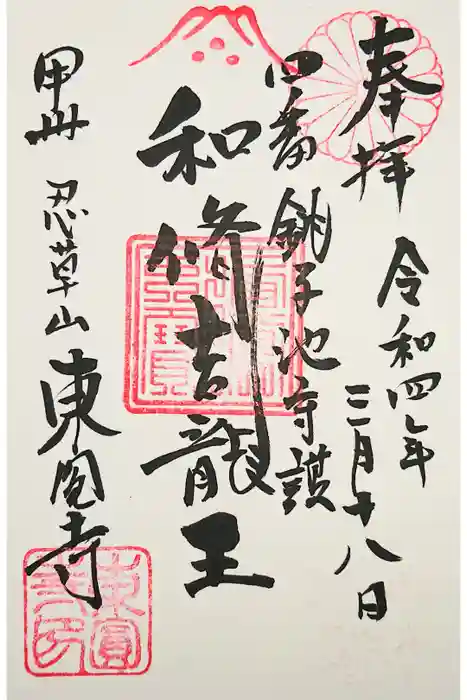 奉拝
令和四年
三月十八日
四番 銚子池守護
和修吉龍王
甲州 忍草山 東圓寺
東圓寺印